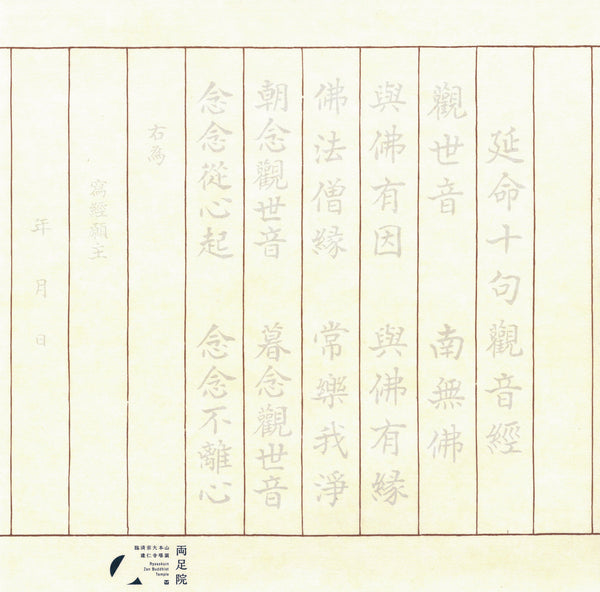 延命十句觀音經
觀世音　南無佛
與佛有因　與佛有緣
佛法僧緣　常樂我淨
朝念觀世音　暮念觀世音
念念從心起　念念不離心
右為
寫經願主
年　月　日
両足院
臨済宗大本山
建仁寺塔頭
Ryosokuin
Zen Buddhist
Temple